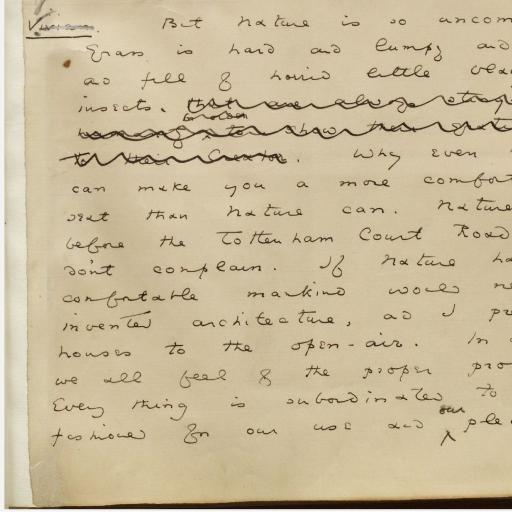 Vivian. But nature is so uncom
Grass is hard and lumpy and
and full of horrid little black
insects. that are always
to show their
to their Creator. Why even
can make you a more comfort
seat than nature can. Nature
before the Tottenham Court Road
don't complain. If nature ha
comfortable mankind would ne
invented architecture, and I pre
houses to the open-air. In
we all feel of the proper pro
Every thing is subordinated to
fashioned for our use and our ple